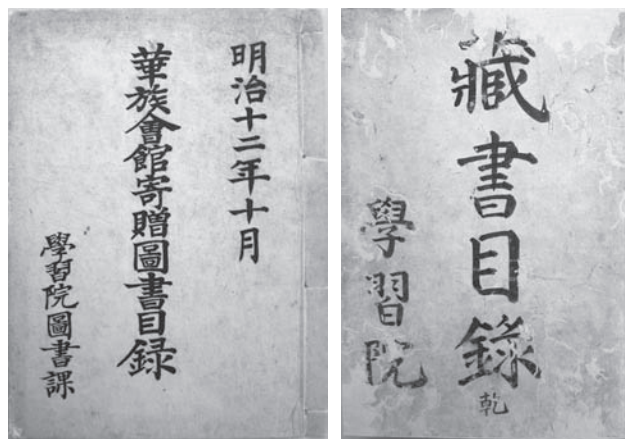 明治十二年十月
華族會館寄贈圖書目録
學習院圖書課
藏書目錄
乾
學習院